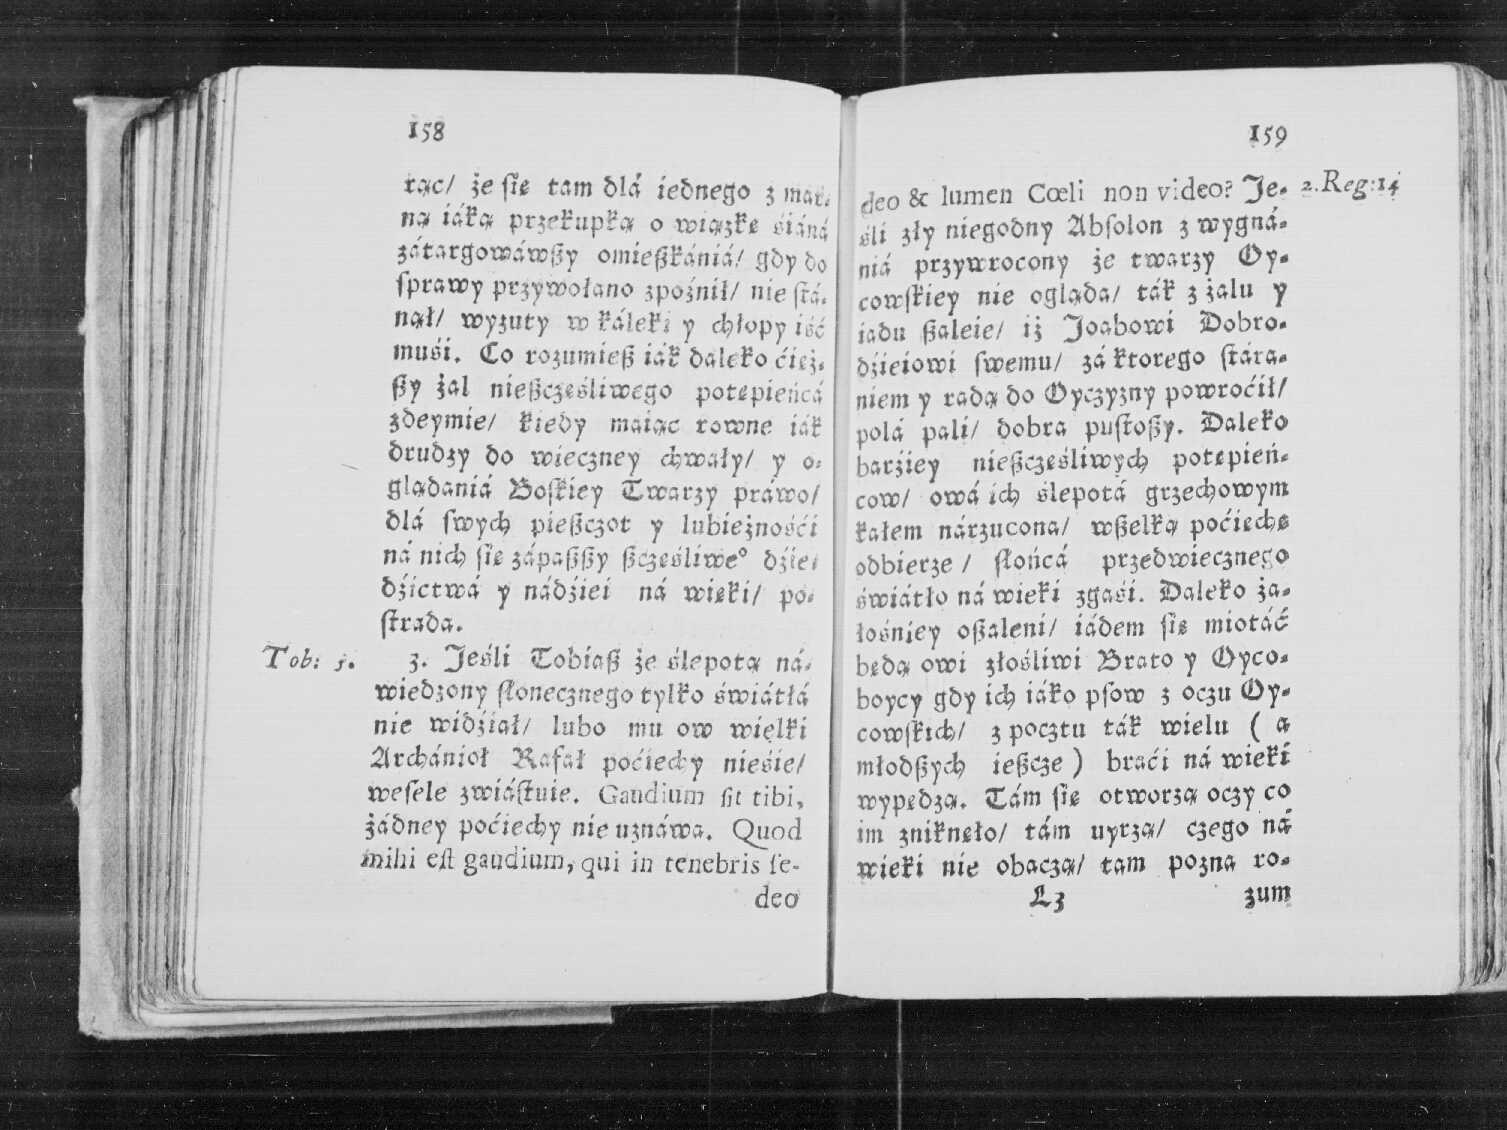 158
rąc/ że ſię tam dlá iednego z mar-
ną iáką przekupką o wiązkę śiáná
zátargowáwßy omießkániá/ gdy do
ſprawy przywołano zpoźnił/ nie ſtá-
nął/ wyzuty w káleki y chłopy iść
muśi. Co rozumieß iák daleko ćięż-
ßy żal nießczęśliwego potępieńcá
zdeymie/ kiedy maiąc rowne iák
drudzy do wieczney chwały/ y o-
glądaniá Boſkiey Twarzy práwo/
dlá ſwych pießczot y lubieżnośći
ná nich ſię zápaßßy ßczęśliwe° dźie-
dźictwá y nádźiei ná wieki/ po-
ſtrada.
Tob: 5.
3. Jeśli Tobiaß że ślepotą ná-
wiedzony ſłonecznego tylko świátłá
nie widźiał/ lubo mu ow wielki
Archánioł Rafał poćiechy nieśie/
weſele zwiáſtuie. Gaudium ſit tibi,
żádney poćiechy nie uznáwa. Quod
mihi eſt gaudium, qui in tenebris ſe-
deo
159
deo & lumen Cœli non video? Je-
2. Reg: 14
śli zły niegodny Abſolon z wygná-
niá przywrocony że twarzy Oy-
cowſkiey nie ogląda/ ták z żalu y
iadu ßaleie/ iż Joabowi Dobro-
dźieiowi ſwemu/ zá ktorego ſtára-
niem y radą do Oyczyzny powroćił/
polá pali/ dobra puſtoßy. Daleko
barźiey nießczęśliwych potępień-
cow/ owá ich ślepotá grzechowym
kałem nárzucona/ wßelką poćiechę
odbierze/ ſłońcá przedwiecznego
świátło ná wieki zgaśi. Daleko ża-
łośniey oßaleni/ iádem ſię miotáć
będą owi złośliwi Brato y Oyco-
boycy gdy ich iáko pſow z oczu Oy-
cowſkich/ z pocztu ták wielu ( a
młodßych ießcze ) braći ná wieki
wypędzą. Tám ſię otworzą oczy co
im zniknęło/ tám uyrzą/ czego ná
wieki nie obaczą/ tam pozna ro-
L3
zum